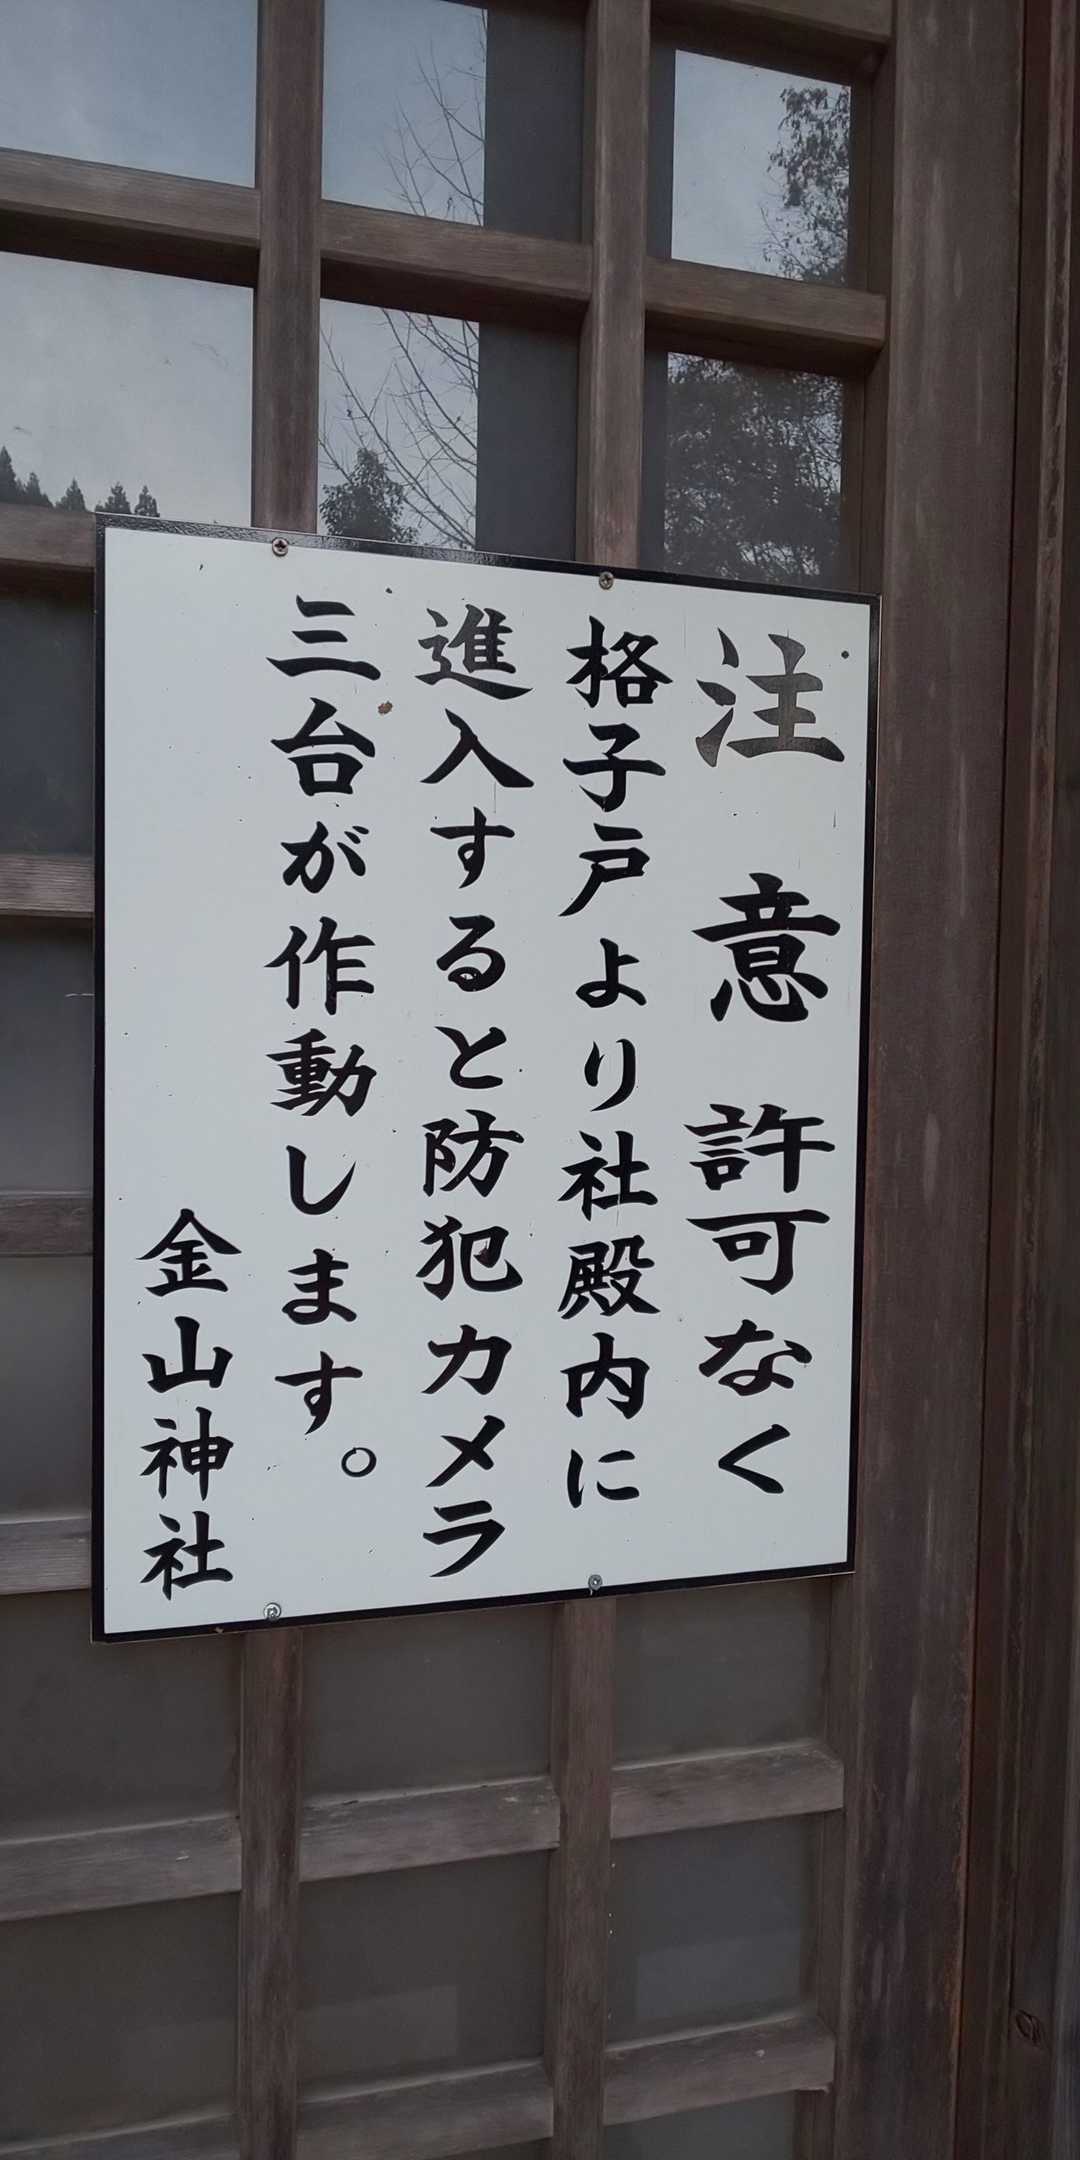 注 意 許可なく
格子戸より社殿内に
進入すると防犯カメラ
三台が作動します。
金山神社